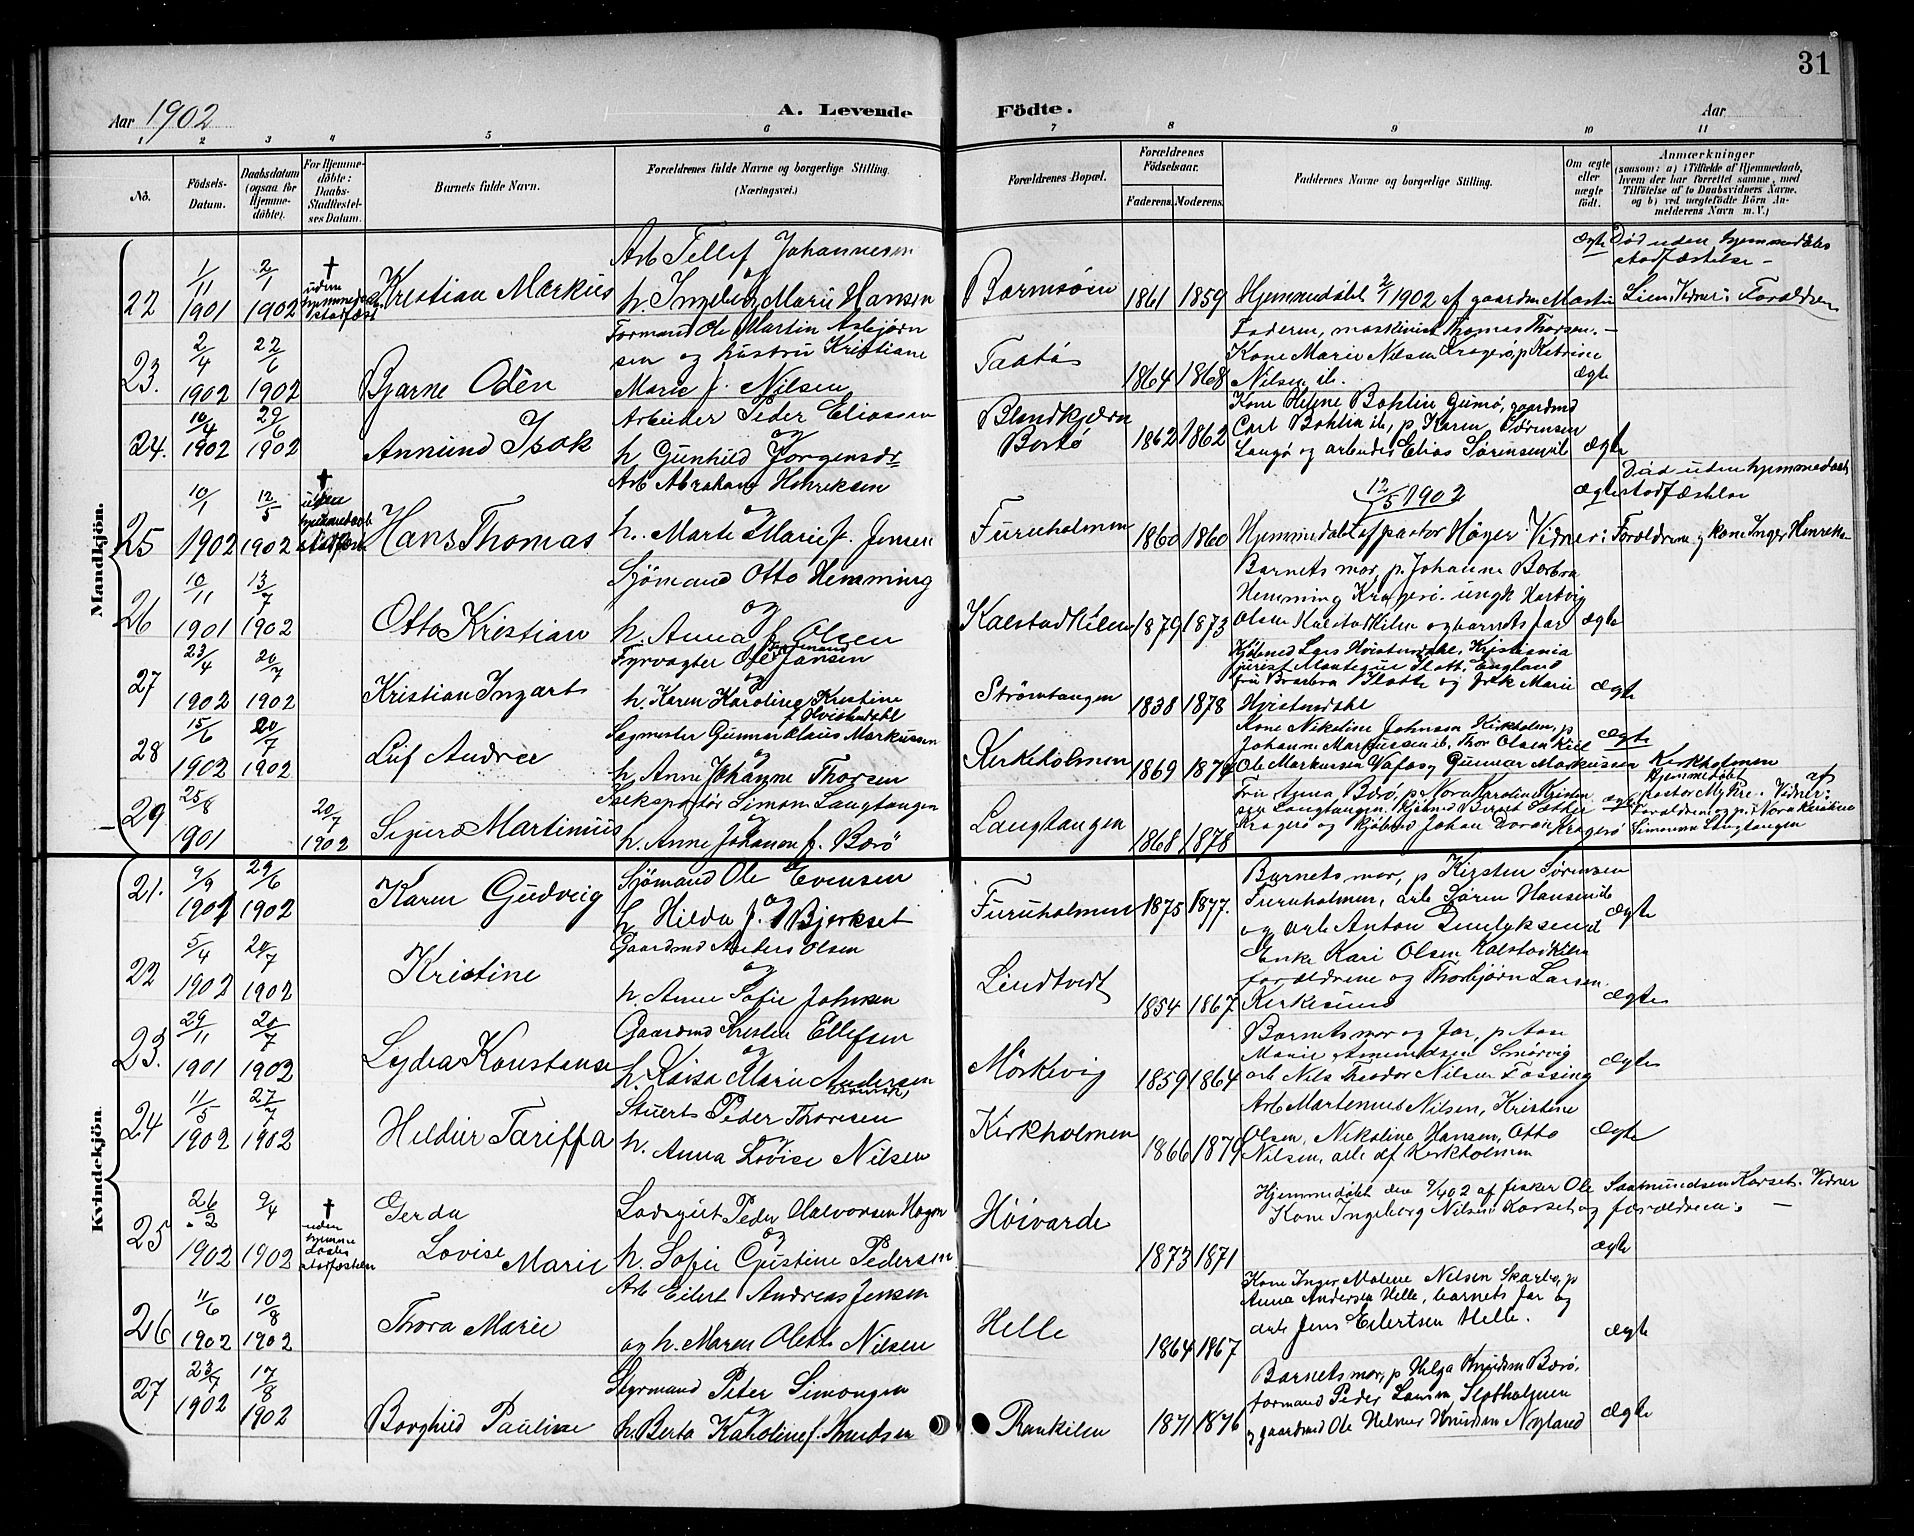 31
Aar 1902
A. Levende Födte.
Aar
1 2 3 4 5 6 7 8 9 10 11
No.
Födsels-Datum.
Daabsdatum (ogsaa for Hjemme-döbte).
For Hjemme-döbte: Daabs-Stadfæstel-ses Datum.
Barnets fulde Navn.
Forældrenes fulde Navne og borgerlige Stilling. (Næringsvei.)
Forældrenes Bopæl.
Forældrenes Födselsaar.
Faderens. Moderens.
Faddernes Navne og borgerlige Stilling.
Om ægte eller uægte födt.
Anmærkninger
(saasom: a) i Tilfælde af Hjemmedaab, hvem der har forrettet samme, med Tilföielse af to Daabsvidners Navne. og b) ved uægtefödte Börn An-melderens Navn m. V.)
Mandkjön.
22 1/11 1901 2/1 1902 † uden hjemmedaabs stadfæst
Kristian Markus
Arb Tellef Johannesen
og
h. Ingeborg Marie Hansen
Barmsöen 1861 1859
Hjemmedöbt 2/1 1902 af gaardm Martin Lien, Vidner: Forældrene
ægte Död uden hjemmedaabs
stadfæstelse -
23. 2/4 1902 22/6 1902
Bjarne Odén
Formand Ole Martin Asbjørn
sen og hustru Kristiane
Marie f. Nilsen
Taatö 1864 1868
Faderen, maskinist Thomas Thorsen. -
Kone Marie Nilsen Kragerö, p Katrine
Nilsen ib. ægte
24. 10/4 1902 29/6 1902
Annund Isak
Arbeider Peder Eliassen
og
h Gunhild Jorgensdr
Borkø 1862 1862
Kone Helene Bohlin Gumø, gaardmd
Carl Bohlin ib, p. Karen Sørensen
Langø og arbeider Elias Sørensen ib ægte
25 10/1 1902 12/5 1902 † uden hjemmedaab stadfæst
Hans Thomas
Arb Abraham Henriksen
og
h. Marte Marie f. Jensen
Furuholmen 1860 1860
12/5 1902
Hjemmedöbt af pastor Höyer. Vidner: Forældrene og kone Inger Henrikse
ægte Död uden hjemmedaab
stadfæstelse
26 10/11 1901 13/7 1902
Otto Kristian
Sjömand Otto Hemming
og
h. Anna f. Olsen
Kalstadkilen 1879 1873
Barnets mor, p. Johanne Barbra
Hemming Kragerö. ungk Hartvig
Olsen Kalstadkilen og barnets far ægte
27 23/4 1902 20/7 1902
Kristian Ingart
Fyrvogter Ole Jansen
h. Karen Karoline Kristine
f. Hvistendahl
Strömtangen 1838 1878
Kjöbmd Lars Hvistendahl, Kristiania
England
fru Barbra og frk Marie
Hvistendahl ægte
28 15/6 1902 20/7 1902
Leif Andrer
Sagmester Gunnar Olaus Markussen
og
h. Anne Johanne Thorsen
Kirkeholmen 1869 1874
Kone Nikoline Johnsen Kirkholm, p
Johanne Markussen ib, Thor Olsen Kiil
Ole Markussen og Gunnar Markussen Kirkholmen
ægte
29 25/8 1901 20/7 1902
Sigurd Martinius
Simon Langtangen
og
h. Anne Johanne f. Barö
Langtangen 1868 1878
Fru Anna Barö, p Nora Karoline Kristen
sen Langtangen, kjöbmd Bernt Sætre
Kragerö og kjöbmd Johan Doran Kragerö
ægte
Hjemmedöbt af
pastor Myhre. Vidner:
Forældrene og p. Nora Kristine
Simonsen Langtangen
Kvindekjön.
21. 9/9 1901 29/6 1902
Karen Gudveig
Sjömand Ole Evensen
og
h. Hilda f. Bjerkset
Furuholmen 1875 1877.
Barnets mor, p Kirsten Sørensen
Furuholmen, arb Søren Hansen ib
og arb Anton ib
ægte
22 5/4 1902 20/7 1902
Kristine
Gaardmd Anders Olsen
og
h. Anne Sofie Johnsen
Lindtvedt 1854 1867
Enke Kari Olsen Kalstadkilen
forældrene og Thorbjørn Larsen
Kirkesund ægte
23. 29/11 1901 20/7 1902
Lydia Konstanse
Gaardmd Kristen Ellefsen
og
h. Kaisa Marie Andersen
Mörkevig 1859 1864
Barnets mor og far, p Aase
Marie Asmundsen Smørvig
arb Nils Theodor Nilsen Fossing
ægte
24 11/5 1902 27/7 1902
Hildur Tariffa
Stuerts Peder Thoresen
og
h. Anna Lovise Nilsen
Kirkholmen 1866 1879
Arb Martenius Nilsen, Kristine
Olsen, Nikoline Hansen, Otto
Nilsen, alle af Kirkholmen
ægte
25 26/2 1902 9/4 1902 † uden hjemme daabs stadfæstelsen
Gerda
Lovise
Marie
Lodsgut Peder Halvorsen Hagen
og
h. Sofie Cristine Pedersen
Höivarde 1873 1871
Hjemmedöbt den 9/4 02 af fisker Ole Saamundsen Korset. Vidner
Kone Ingeborg Nilsen Korset og forældrene. -
ægte
26 11/6 1902 10/8 1902
Thora Marie
Arb Eilert Andreas Jensen
og h. Maren Olette Nilsen
Helle 1864 1867
Kone Inger Malene Nilsen Skarbo, p
Anna Andersen Helle, barnets far og
arb Jens Eilertsen Helle.
ægte
27 23/7 1902 17/8 1902
Borghild Pauline
Styrmand Peter Simonsen
og
h. Berta Karoline f. Knudsen
Rankilen 1871 1876
Barnets mor, p Helga Knudsen Barö,
formand Peder Larsen Slotholmen
og gaardmd Ole Helmer Knudsen Nyland
ægte